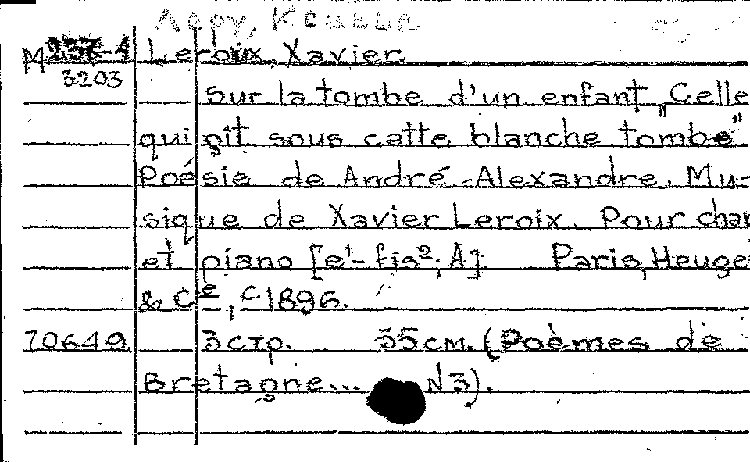 Леру, Ксавье
M
3203
Leroix, Xavier.
Sur la tombe d'un enfant, "Celle
qui gît sous catte blanche tombe"
Poésie de André-Alexandre. Mu-
sique de Xavier Leroix. Pour chan
et piano [e¹-fis²; A]. Paris, Heuge
& Cᵉ, c 1896.
70649 3 стр. 35 см. (Poèmes de
Bretagne... N3).